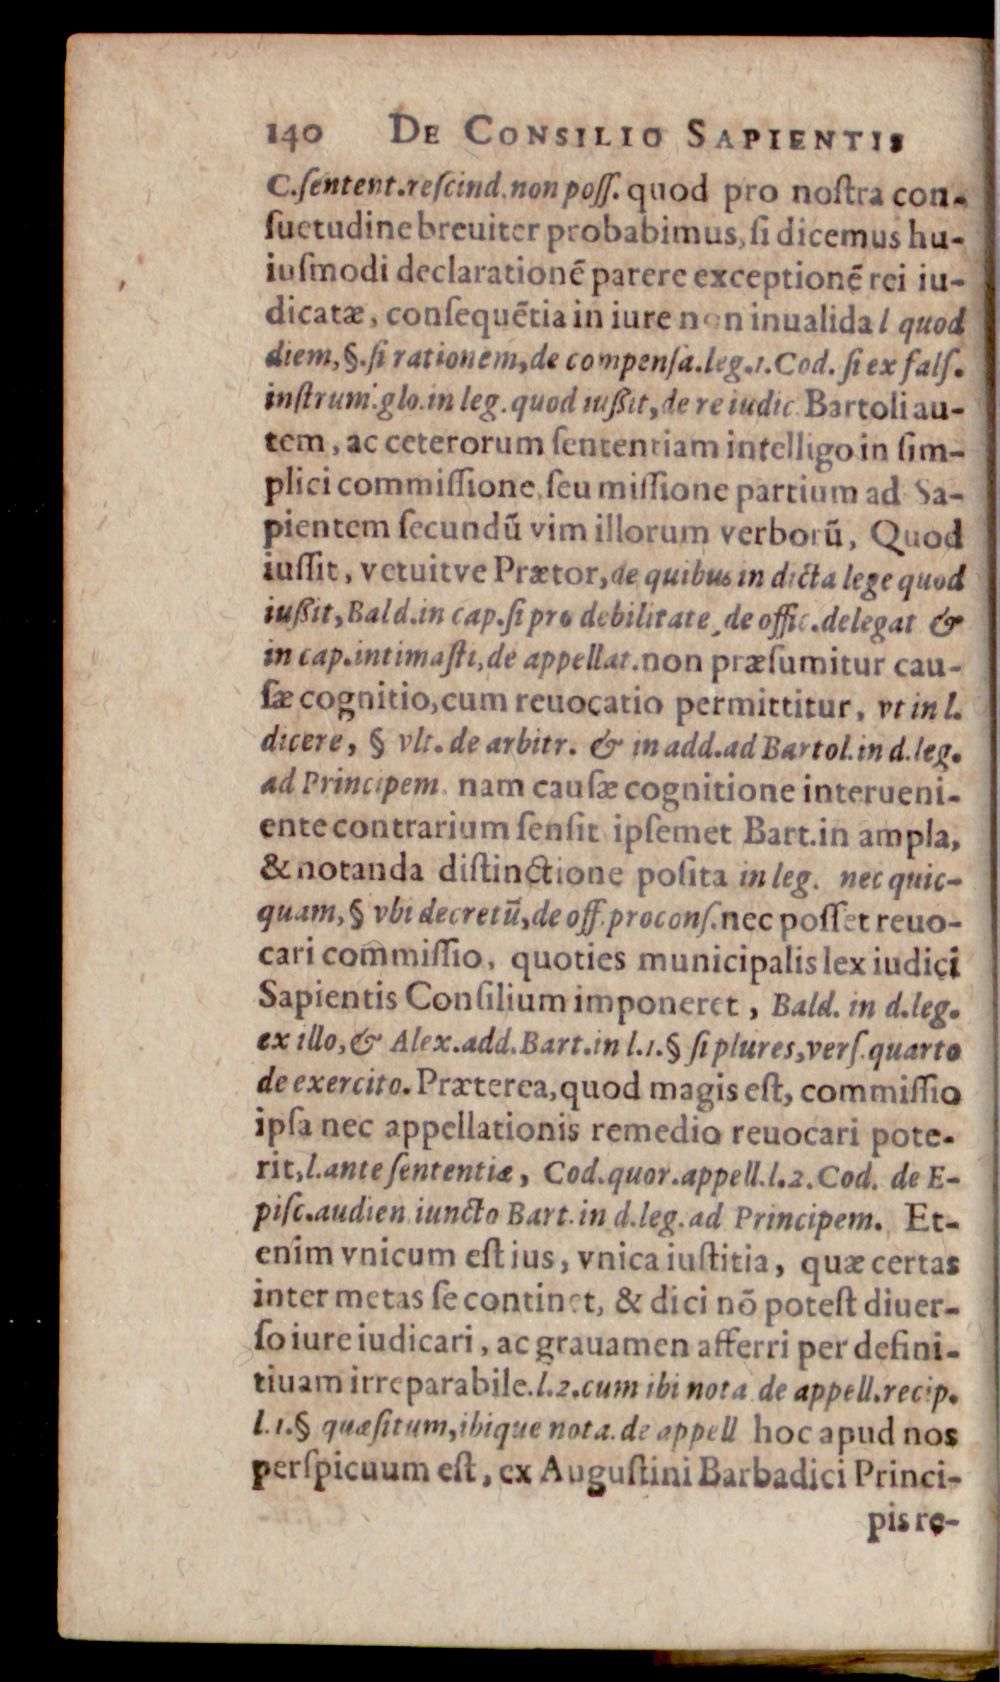 140 DE CONSILIO SAPIENTIS
C.ſentent.reſcind.non poſſ. quod pro noſtra con-
ſuetudine breuiter probabimus, ſi dicemus hu-
iuſmodi declarationē parere exceptionē rei iu-
dicatæ, conſequētia in iure non inualida l quod
diem, §. ſi rationem, de compenſa. leg. 1. Cod. ſi ex falſ.
inſtrum. glo. in leg. quod iußit, de re iudic Bartoli au-
tem, ac ceterorum ſententiam intelligo in ſim-
plici commiſſione ſeu miſſione partium ad Sa-
pientem ſecundū vim illorum verborū, Quod
iuſſit, vetuitve Prætor, de quibus in dicta lege quod
iußit, Bald. in cap. ſi pro debilitate, de offic. delegat &
in cap. intimaſti, de appellat. non præſumitur cau-
ſæ cognitio, cum reuocatio permittitur, vt in l.
dicere, § vlt. de arbitr. & in add. ad Bartol. in d. leg.
ad Principem. nam cauſæ cognitione interueni-
ente contrarium ſenſit ipſemet Bart. in ampla,
& notanda diſtinctione poſita in leg. nec quic-
quam, § vbi decretū, de off. proconſ. nec poſſet reuo-
cari commiſſio, quoties municipalis lex iudici
Sapientis Conſilium imponeret, Bald. in d. leg.
ex illo, & Alex. add. Bart. in l. 1. § ſi plures, verſ. quarto
de exercito. Præterea, quod magis eſt, commiſſio
ipſa nec appellationis remedio reuocari pote-
rit, l. ante ſententiæ, Cod. quor. appell. l. 2. Cod. de E-
piſc. audien. iuncto Bart. in d. leg. ad Principem. Et-
enim vnicum eſt ius, vnica iuſtitia, quæ certas
inter metas ſe continet, & dici nō poteſt diuer-
ſo iure iudicari, ac grauamen afferri per defini-
tiuam irreparabile. l. 2. cum ibi nota de appell. recip.
l. 1. § quæſitum, ibique nota. de appell hoc apud nos
perſpicuum eſt, ex Auguſtini Barbadici Princi-
pis re-